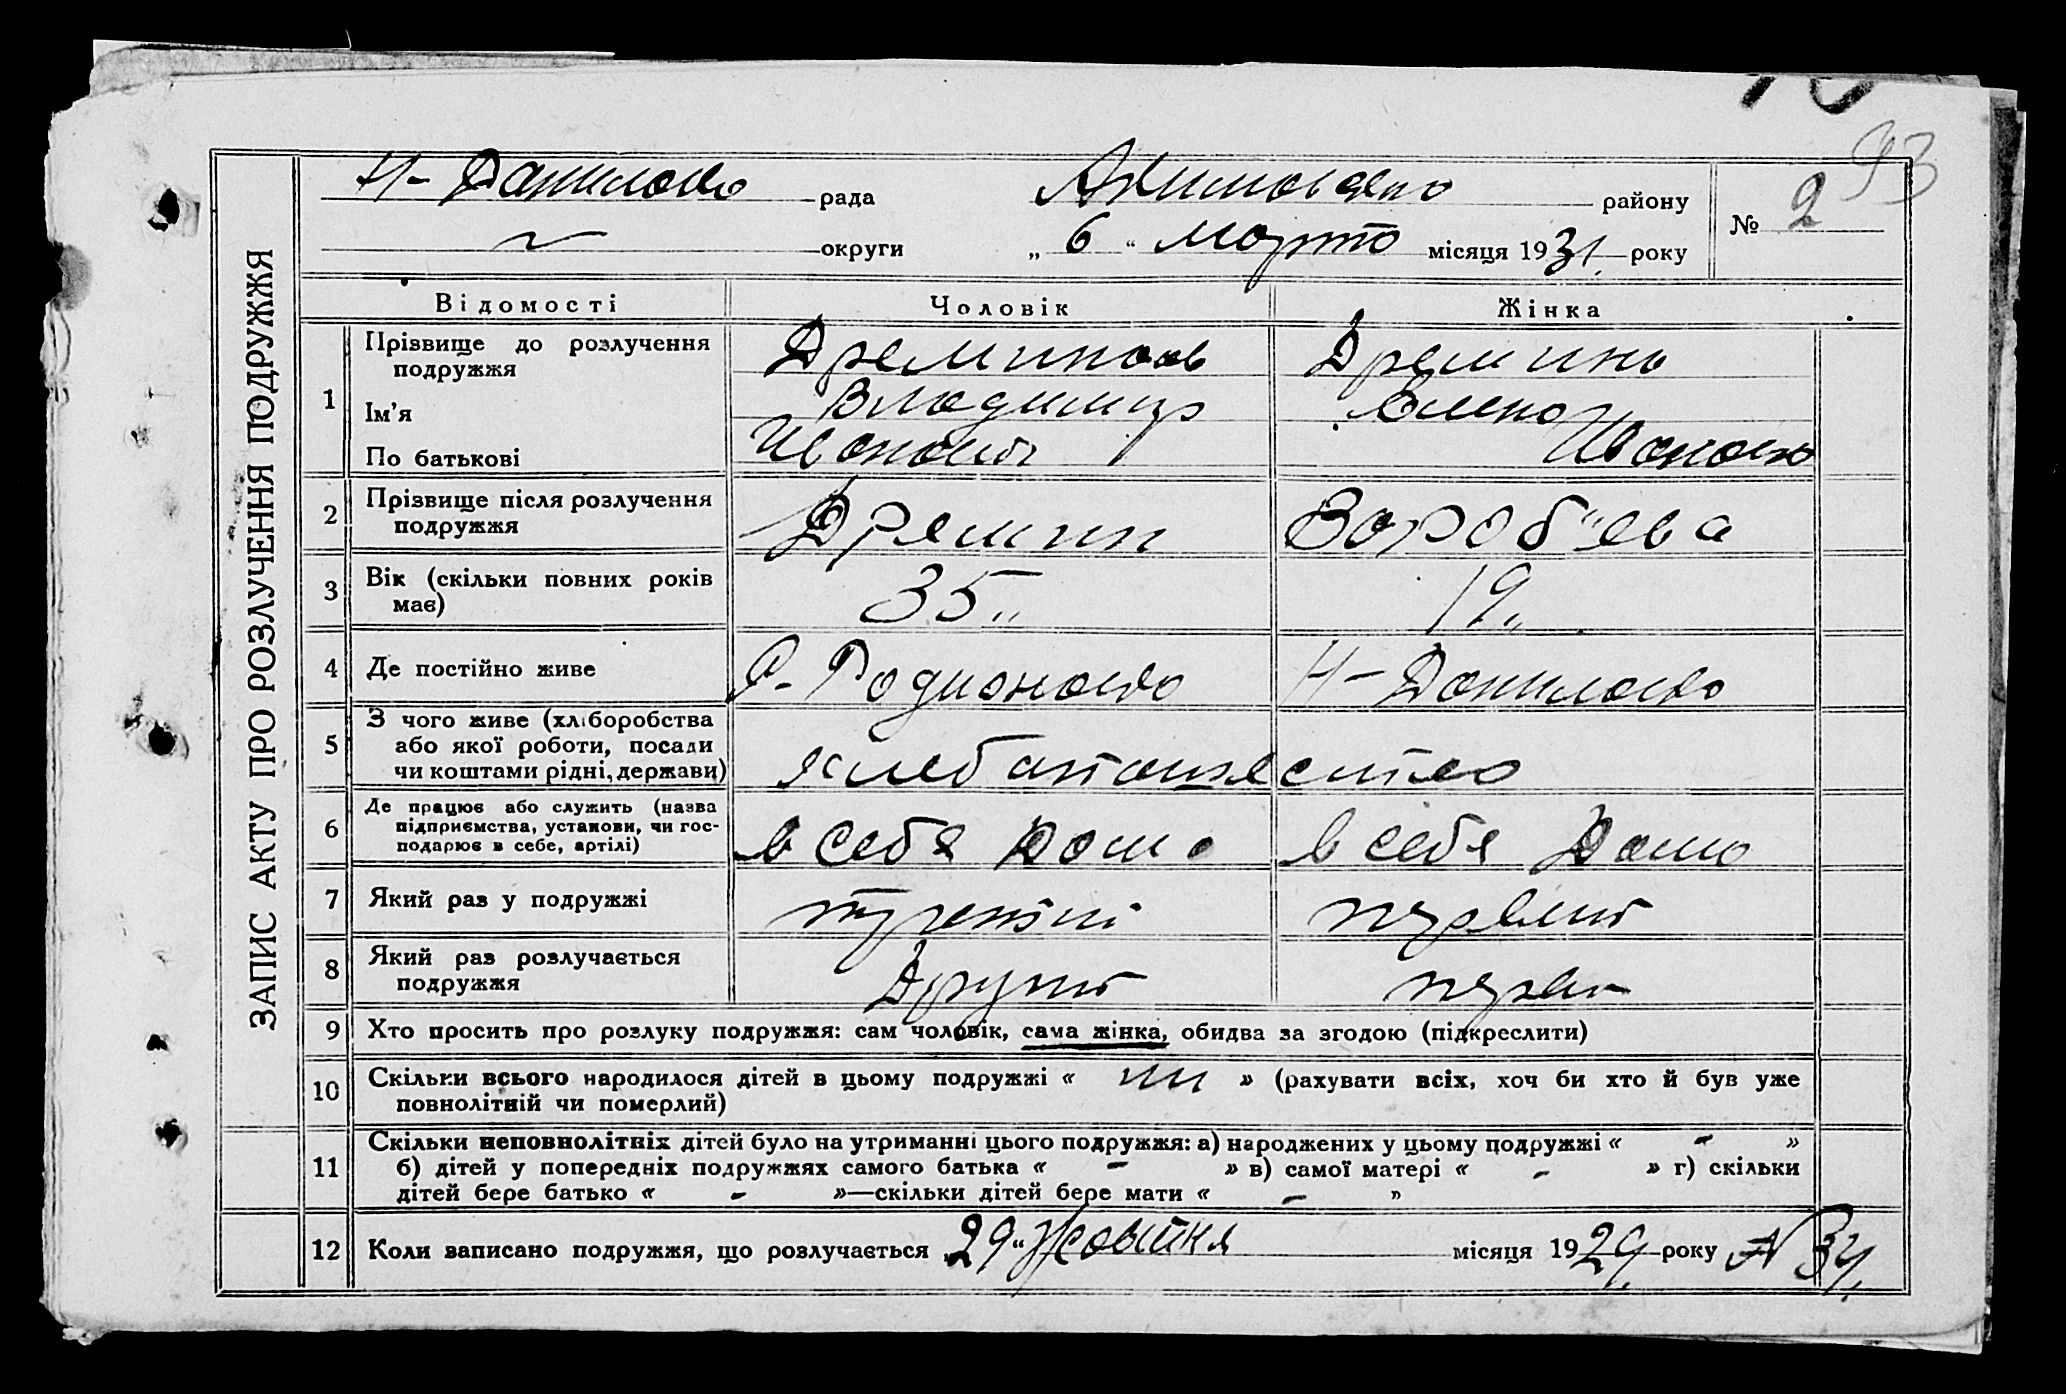 93
ЗАПИС АКТУ ПРО РОЗЛУЧЕННЯ ПОДРУЖЖЯ
Н-Даниловка рада Акимовского району № 2
округи „ 6 “ марта місяця 1931 року
Відомості Чоловік Жінка
1 Прізвище до розлучення подружжя Дремин Дремина
Ім'я Владимир Елена
По батькові Иванович Ивановна
2 Прізвище після розлучення подружжя Дремин Вороб'ева
3 Вік (скільки повних років має) 35 19
4 Де постійно живе Р-Родионовка Н-Даниловка
5 З чого живе (хліборобства або якої роботи, посади чи коштами рідні, держави)
6 Де працює або служить (назва підприємства, установи, чи господарює в себе, артілі) в себя дома в себя дома
7 Який раз у подружжі третий первый
8 Який раз розлучається подружжя другий перв
9 Хто просить про розлуку подружжя: сам чоловік, сама жінка, обидва за згодою (підкреслити)
10 Скільки всього народилося дітей в цьому подружжі « » (рахувати всіх, хоч би хто й був уже
повнолітній чи померлий)
11 Скільки неповнолітніх дітей було на утриманні цього подружжя: а) народжених у цьому подружжі « - »
б) дітей у попередніх подружжях самого батька « - » в) самої матері « - » г) скільки
дітей бере батько « - »—скільки дітей бере мати « - »
12 Коли записано подружжя, що розлучається 29 “ Жовтня місяця 1929 року № 34